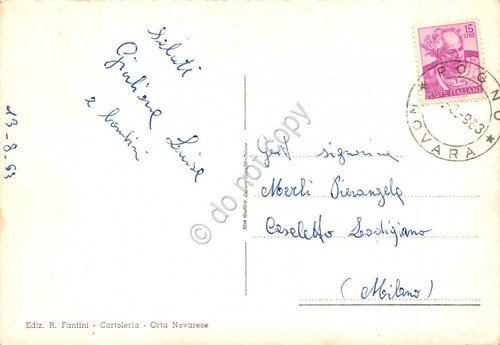 saluti
Giuliana Luisa
e bambini
13-8-63
15
LIRE
POSTE ITALIANE
POGNO
NOVARA
Gent signorina
Merli Pierangela
Caseletto Lodigiano
(Milano)
do not copy
Ediz. R. Fantini - Cartoleria - Orta Novarese